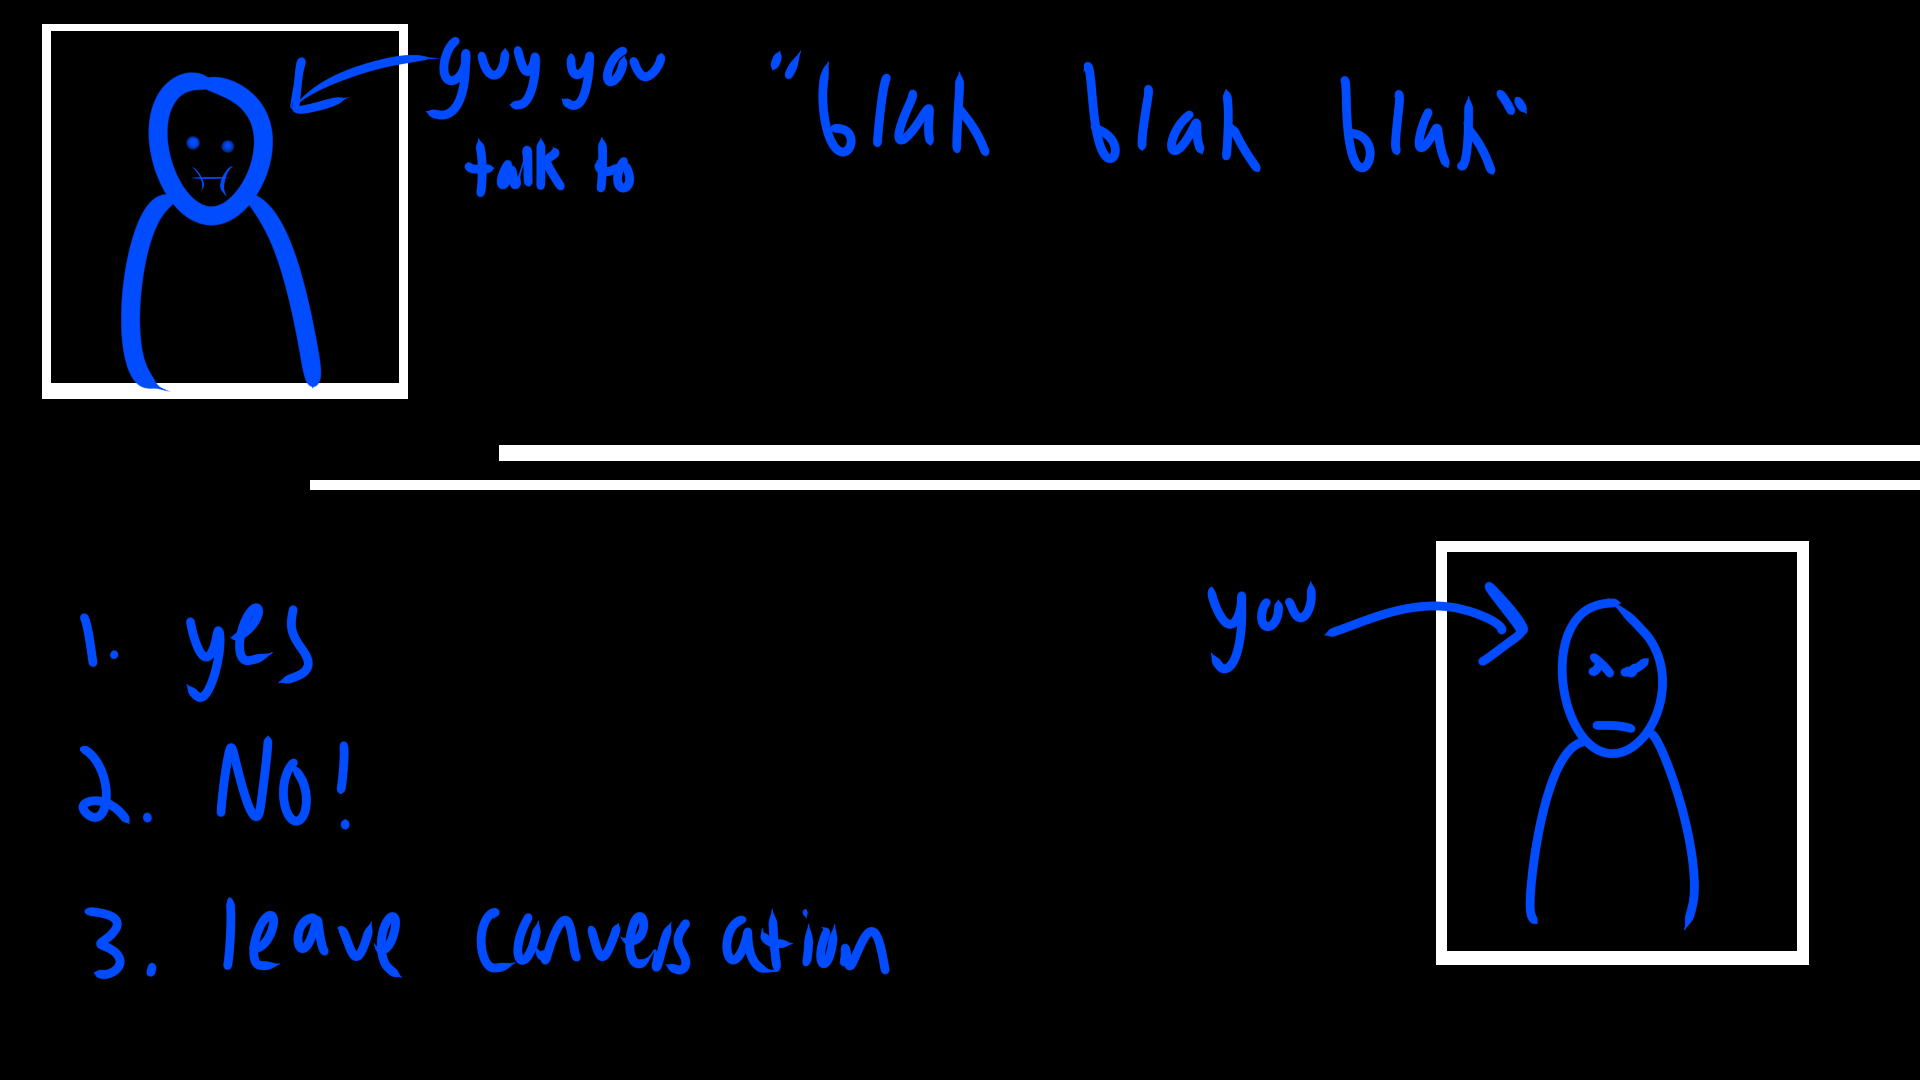 guy you
talk to
"blah blah blah"
you
1. yes
2. No!
3. leave conversation